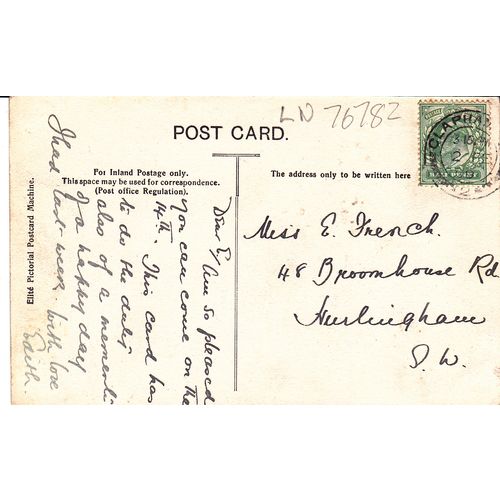 LN 76782
POST CARD.
For Inland Postage only.
This space may be used for correspondence.
(Post office Regulation).
The address only to be written here
Elité Pictorial Postcard Machine.
CLAPHAM
HALFPENNY
Dear E, Am so pleased
you can come on the
14th. This card has
to do the duty
also of a memento
of a happy day
I had last week. With love
Edith
Miss E. French.
48 Broomhouse Rd
Hurlingham
S. W.